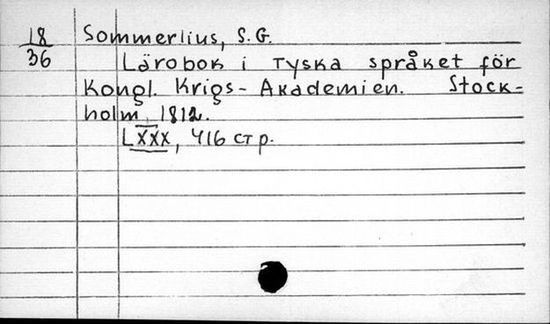 18/36
Sommerlius, S.G.
Lärobok i Tyska språket för
Kongl. Krigs-Akademien. Stock-
holm, 1812.
LXXX, 416 стр.